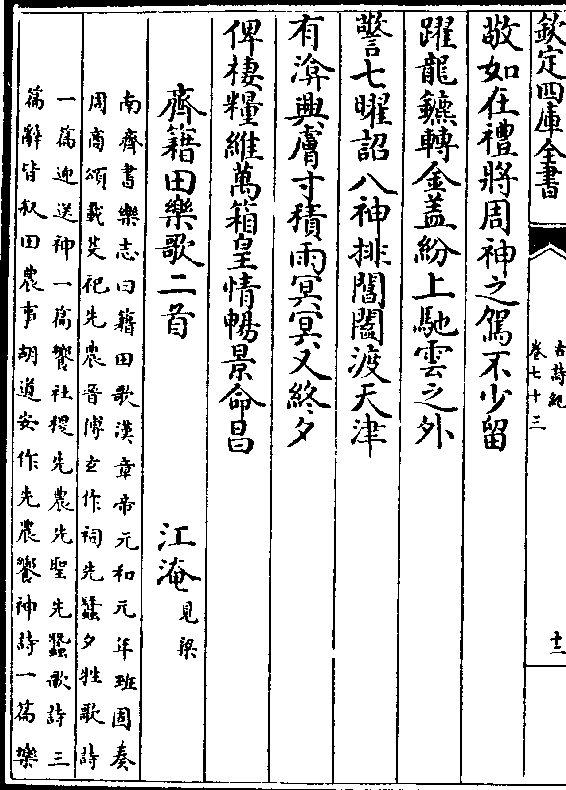 欽定四庫全書
古詩紀
卷七十三
十二
敬如在禮將周神之駕不少留
躍龍鑣轉金蓋紛上馳雲之外
警七曜詔八神排閶闔渡天津
有渰興膚寸積雨冥冥又終夕
俾棲糧維萬箱皇情暢景命昌
齊籍田樂歌二首
江淹
見梁
南齊書樂志曰籍田歌漢章帝元和元年班固奏
周商頌載芟祀先農晉傅玄作祠先蠶夕牲歌詩
一篇迎送神一篇饗社稷先農先聖先蠶歌詩三
篇辭皆叙田農事胡道安作先農饗神詩一篇樂